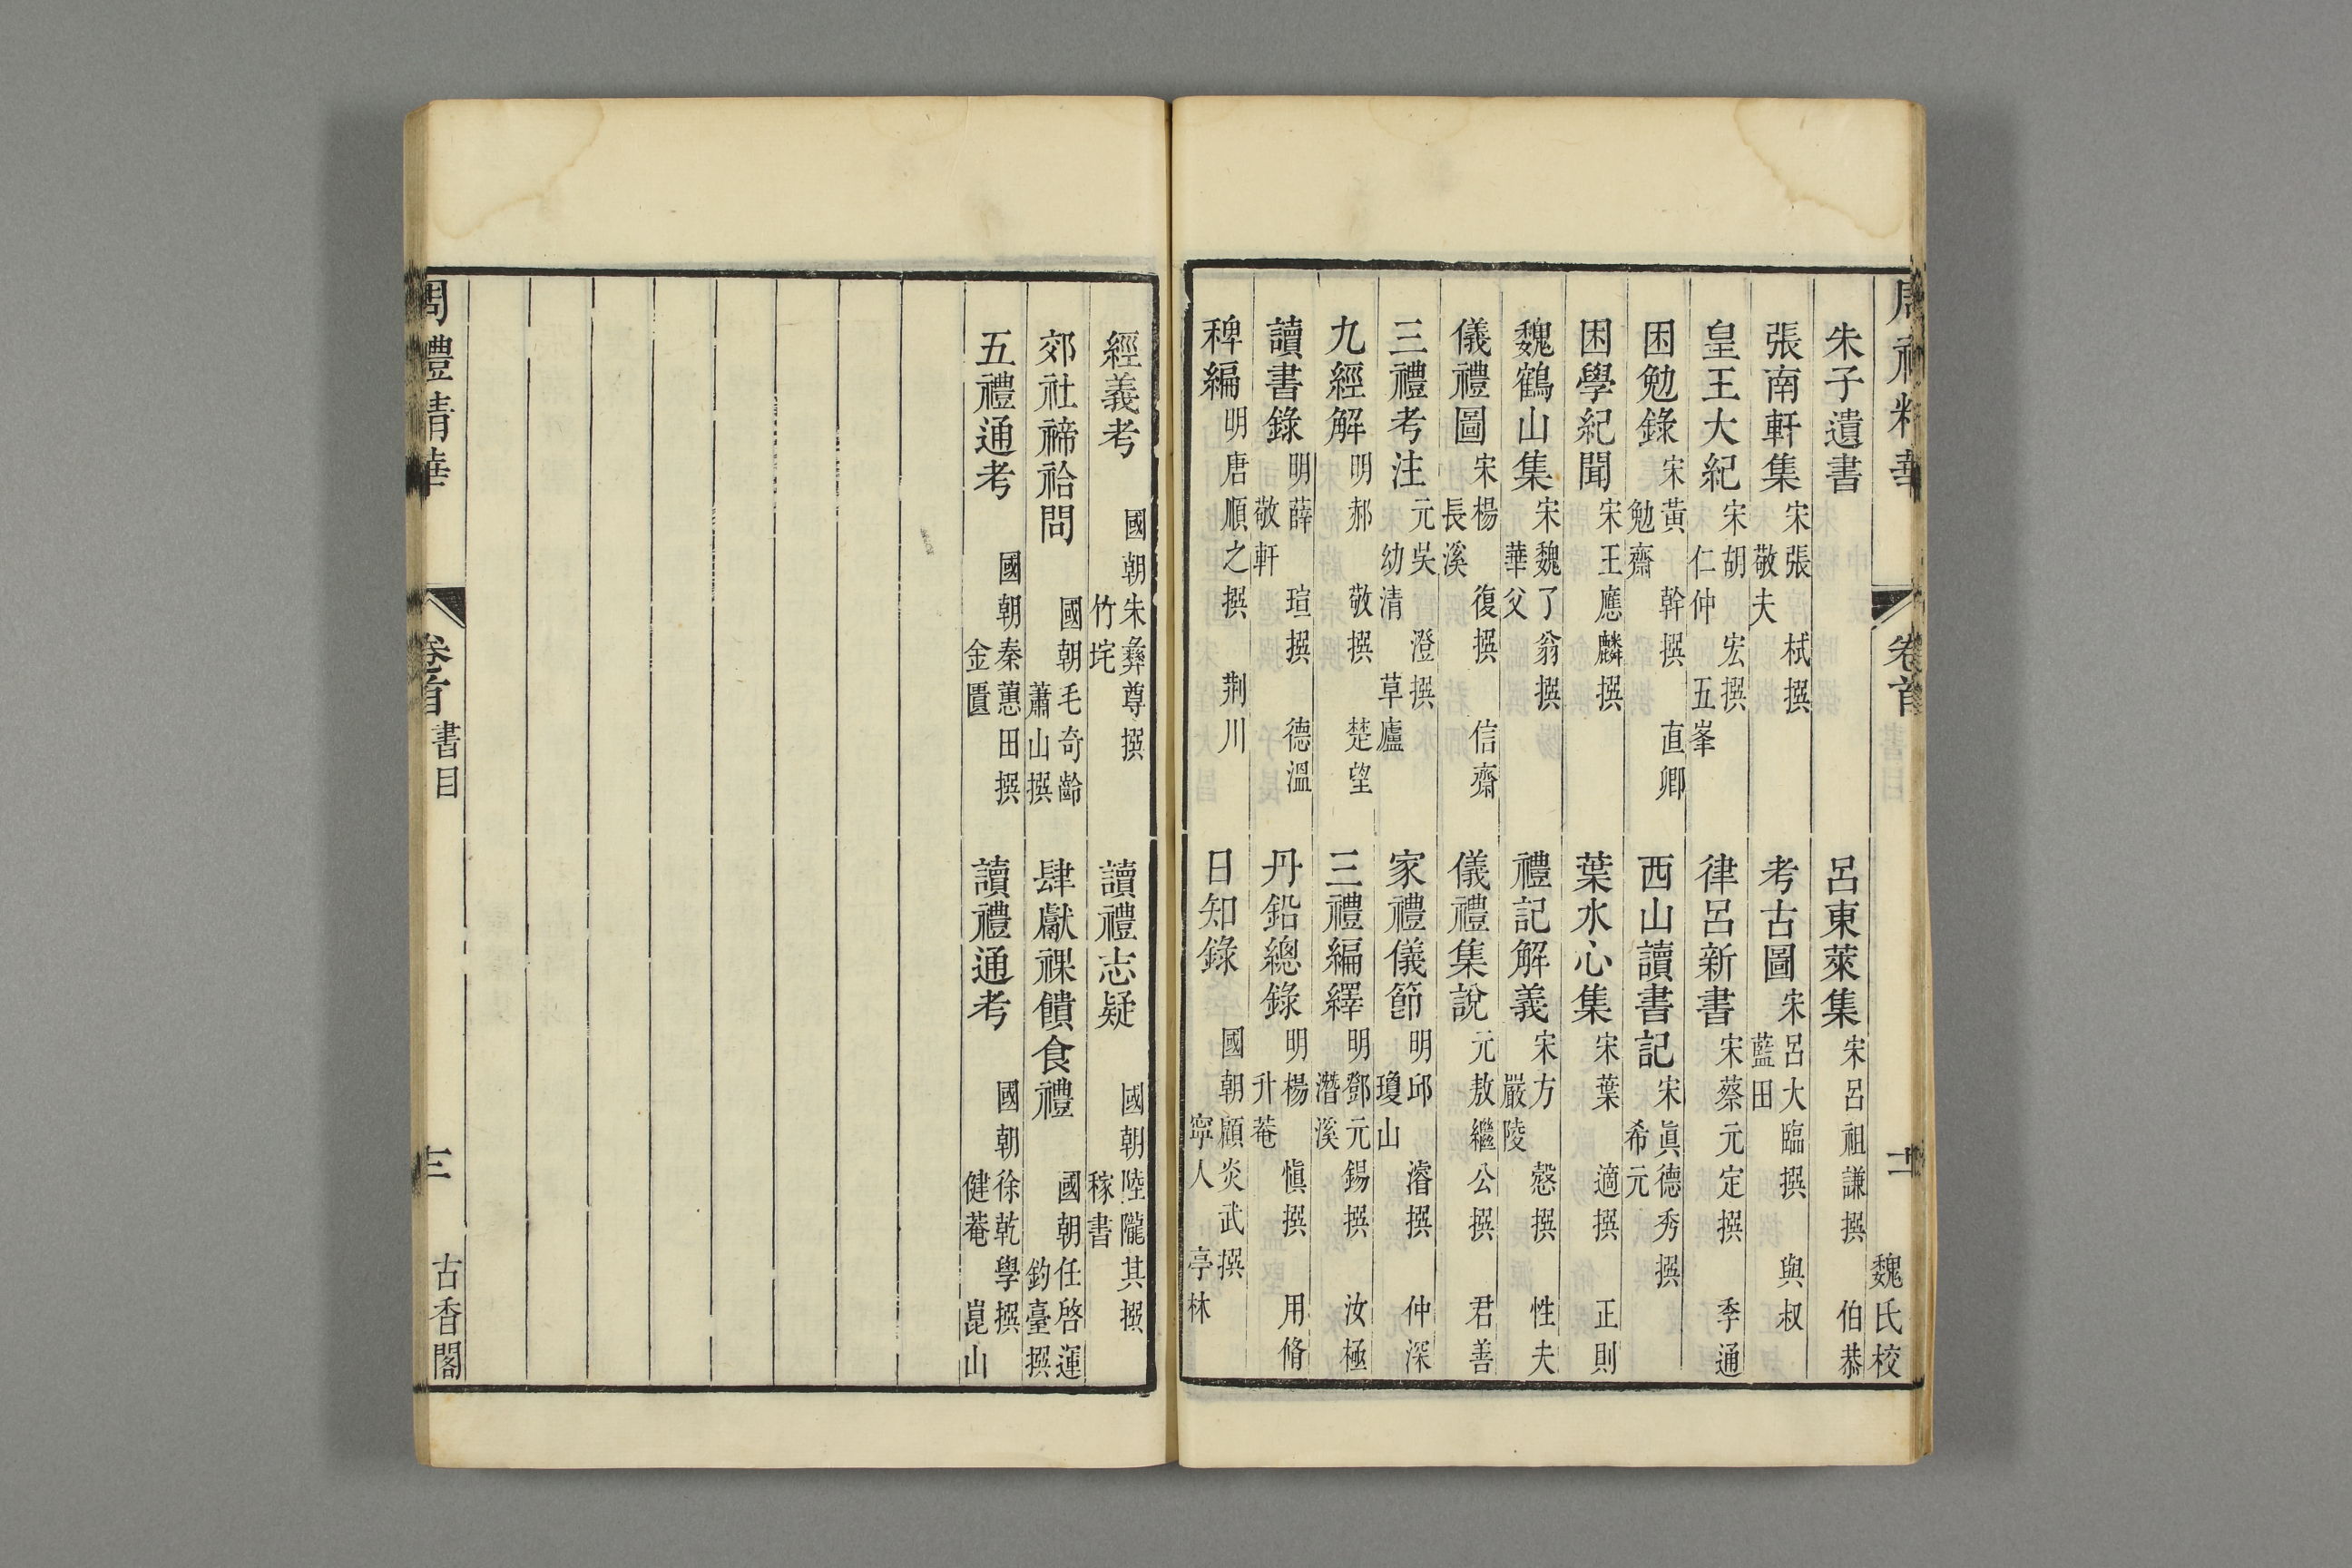 周禮精華
卷首
士
魏氏校
朱子遺書
呂東萊集 宋呂祖謙撰 伯恭
張南軒集 宋張栻撰 敬夫
考古圖 宋呂大臨撰 與叔 藍田
皇王大紀 宋胡宏撰 仁仲 五峯
律呂新書 宋蔡元定撰 季通
困勉錄 宋黃榦撰 直卿 勉齋
西山讀書記 宋眞德秀撰 希元
困學紀聞 宋王應麟撰
葉水心集 宋葉適撰 正則
魏鶴山集 宋魏了翁撰 華父
禮記解義 宋方慤撰 性夫 嚴陵
儀禮圖 宋楊復撰 信齋 長溪
儀禮集說 元敖繼公撰 君善
三禮考注 元吳澄撰 幼清 草廬
家禮儀節 明邱濬撰 仲深 瓊山
九經解 明郝敬撰 楚望
三禮編繹 明鄧元錫撰 汝極 潛溪
讀書錄 明薛瑄撰 德溫 敬軒
丹鉛總錄 明楊愼撰 用脩 升菴
稗編 明唐順之撰 荆川
日知錄 國朝顧炎武撰 寧人 亭林
經義考 國朝朱彝尊撰 竹垞
讀禮志疑 國朝陸隴其撰 稼書
郊社禘祫問 國朝毛奇齡 蕭山撰
肆獻祼饋食禮 國朝任啓運 鈞臺撰
五禮通考 國朝秦蕙田撰 金匱
讀禮通考 國朝徐乾學撰 健菴 崑山
周禮精華
卷首 書目
三
古香閣